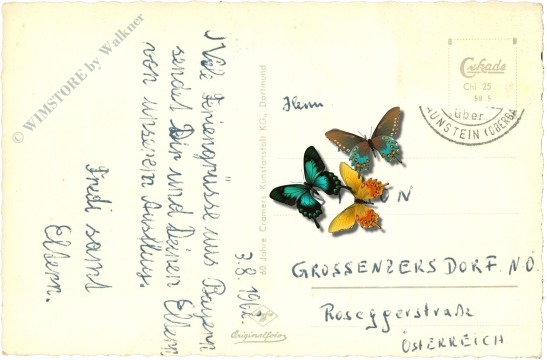 © WIMSTORE by Walkner
Viele Feriengrüsse aus Bayern
sendet Dir und Deinen Eltern
von unserem Ausflug.
Fredi samt
Eltern.
3.8.1962
60 Jahre Cramers Kunstanstalt KG., Dortmund
Originalfoto
Cekade
Chi 25
58 5
über
AUNSTEIN (OBERBA
Herrn
ON
GROSSENZERSDORF. N.Ö.
Roseggerstraße
ÖSTERREICH